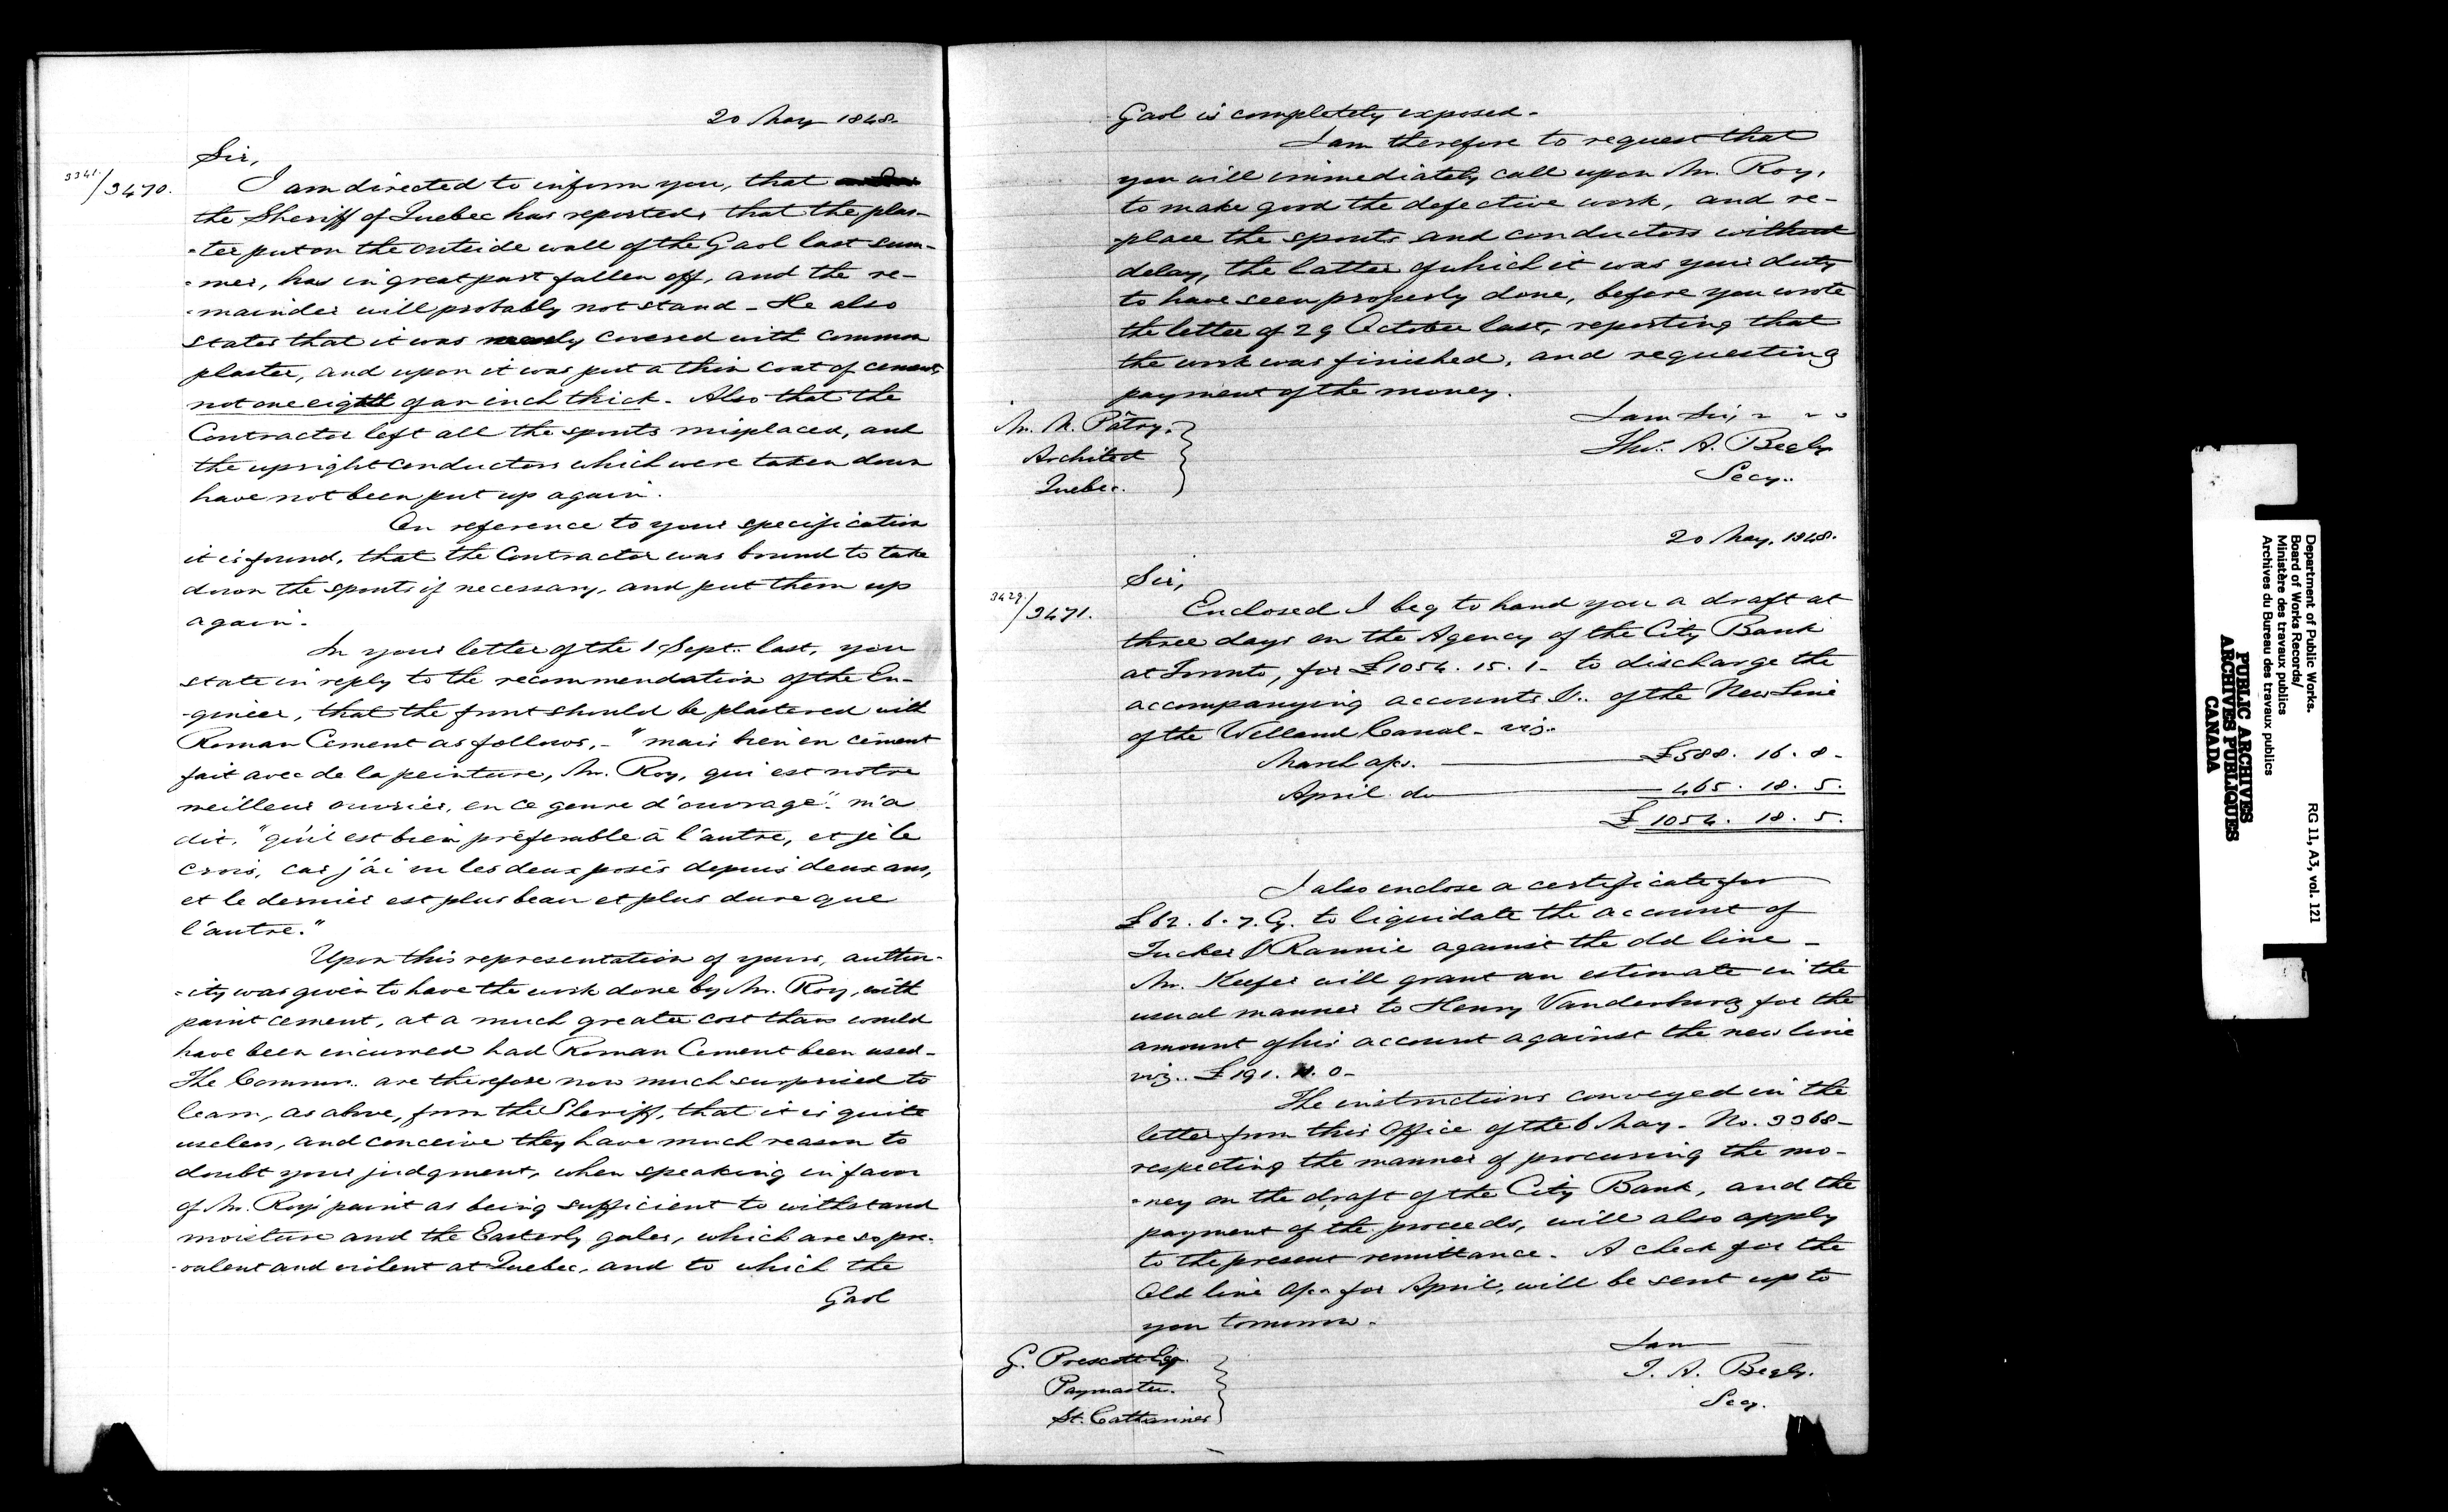 20 May 1848.
Sir,
3341./3470.
I am directed to inform you, that
the Sheriff of Quebec has reported, that the plas-
-ter put on the outside wall of the Gaol last sum-
-mer, has in great part fallen off, and the re-
-mainder will probably not stand - He also
states that it was merely covered with common
plaster, and upon it was put a thin coat of cement,
not one eighth of an inch thick. Also that the
Contractor left all the spouts misplaced, and
the upright conductors which were taken down
have not been put up again.
On reference to your specification
it is found, that the Contractor was bound to take
down the spouts if necessary, and put them up
again.
In your letter of the 1 Sept. last, you
state in reply to the recommendation of the En-
-gineer, that the front should be plastered with
Roman Cement as follows, - "mais bien en cement
fait avec de la peinture, Mr. Roy, qui est notre
meilleur ouvrier, en ce genre d'ouvrage". m'a
dit, "qu'il est bien préferable à l'autre, et je le
crois, car j'ai vu les deux posés depuis deux ans,
et le dernier est plus beau et plus dure que
l'autre."
Upon this representation of yours, author-
-ity was given to have the work done by Mr. Roy, with
paint cement, at a much greater cost than would
have been incurred had Roman Cement been used -
The Commrs. are therefore now much surprised to
learn, as above, from the Sheriff, that it is quite
useless, and conceive they have much reason to
doubt your judgment, when speaking in favor
of Mr. Roy's paint as being sufficient to withstand
moisture and the Easterly gales, which are so pre-
-valent and violent at Quebec, and to which the
Gaol
Gaol is completely exposed -
I am therefore to request that
you will immediately call upon Mr. Roy,
to make good the defective work, and re-
-place the spouts and conductors without
delay, the latter of which it was your duty
to have seen properly done, before you wrote
the letter of 29 October last, reporting that
the work was finished, and requesting
payment of the money.
I am Sir,
Mr. Patry.
Architect
Quebec.
Thos. A. Begly
Secy.
20 May. 1848.
Sir,
3429./3471.
Enclosed I beg to hand you a draft at
three days on the Agency of the City Bank
at Toronto, for £1054. 15. 1 - to discharge the
accompanying accounts &. of the New Line
of the Welland Canal - viz.
March a/cs. £588. 16. 8 -
April do 465. 18. 5.
£1054. 18. 5.
I also enclose a certificate for
£62. 6. 7. Cy. to liquidate the account of
Tucker & Rannie against the old line -
Mr. Keefer will grant an estimate in the
usual manner to Henry Vanderburg for the
amount of his account against the new line
viz. £191. 11. 0 -
The instructions conveyed in the
letter from this Office of the 6 May - No. 3368 -
respecting the manner of procuring the mo-
-ney on the draft of the City Bank, and the
payment of the proceeds, will also apply
to the present remittance. A check for the
Old line a/cs for April, will be sent up to
you tomorrow.
I am
G. Prescott Esq.
Paymaster.
St. Catharines
T. A. Begly.
Secy.
Department of Public Works.
Board of Works Records/
Ministère des travaux publics
Archives du Bureau des travaux publics
RG 11, A3, vol. 121
PUBLIC ARCHIVES
ARCHIVES PUBLIQUES
CANADA